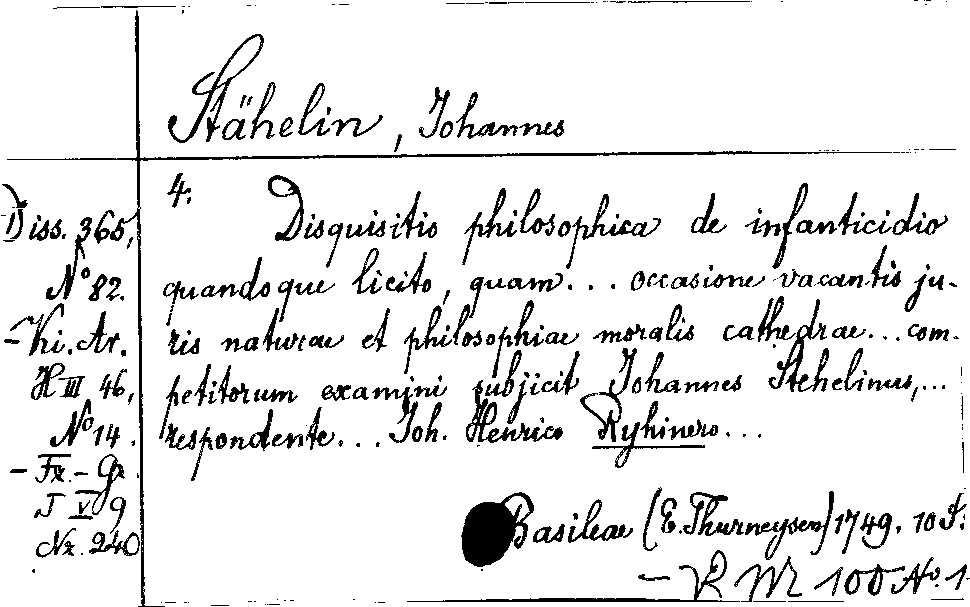 Stähelin, Johannes
4.
Disquisitio philosophica de infanticidio
quandoque licito, quam... occasione vacantis ju-
ris naturae et philosophiae moralis cathedrae... com-
petitorum examini subjicit Johannes Stehelinus,...
respondente... Joh. Henrico Ryhinero...
Basileae (E. Thurneysen) 1749. 10 S.
Diss. 365,
No 82.
- Ki. Ar.
H III 46,
No 14.
- Fx. - Gr.
J V 9
Nr. 240
- VR M 100 No. 1